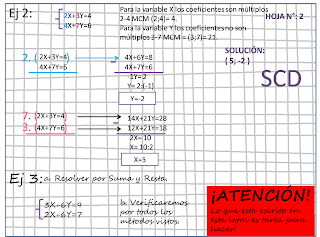 Ej 2:
2X+3Y=4
4X+7Y=6
Para la variable X los coeficientes son múltiplos
2-4 MCM (2;4)= 4.
Para la variable Y los coeficientes no son
múltiplos 3-7 MCM = (3;7)= 21.
HOJA Nº: 2
SOLUCIÓN:
( 5; -2 )
SCD
2. (2X+3Y=4)
4X+7Y=6
4X+6Y=8
4X+7Y=6
-1Y=2
Y= 2:(-1)
Y=-2
7. (2X+3Y=4)
3. (4X+7Y=6)
14X+21Y=28
12X+21Y=18
2X= 10
X= 10:2
X=5
Ej 3: a. Resolver por Suma y Resta.
3X-6Y=9
2X+6Y=7
b. Verificaremos
por todos los
métodos vistos.
¡ATENCIÓN!
Lo que esta escrito en
esta letra es tarea para
hacer!